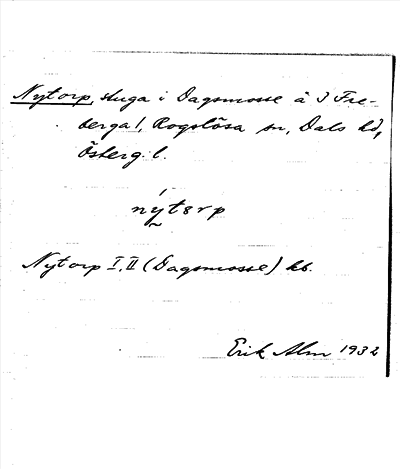 Nytorp, stuga i Dagsmosse å 3 Fre-
berga 1, Rogslösa sn, Dals hd,
Österg. l.
nytorp
Nytorp I, II (Dagsmosse) kb.
Erik Alm 1932